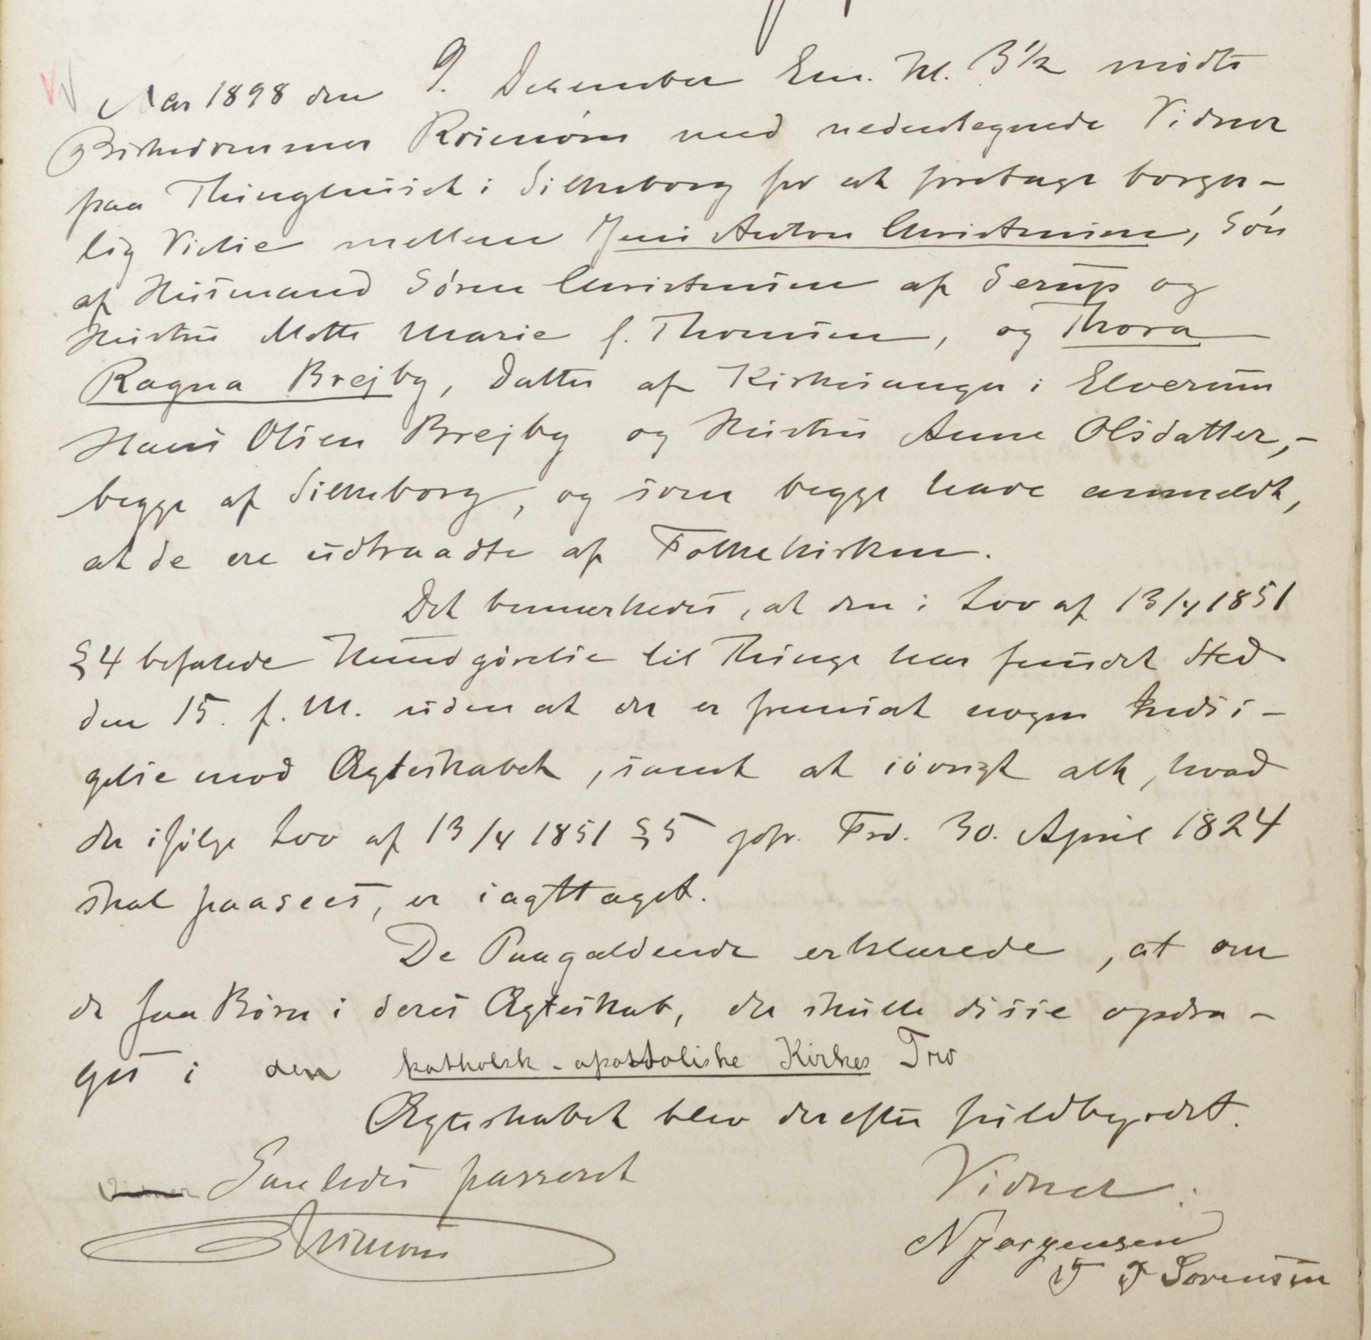 Aar 1898 den 9. December Em. Kl. 3½ mødte
Birkedommer Rosenørn med nedentegnede Vidner
paa Thinghuset i Silkeborg for at foretage borger-
lig Vielse mellem Jens Anton Christensen, Søn
af Husmand Søren Christensen af Serup og
Hustru Mette Marie f. Thomsen, og Thora
Ragna Brejby, Datter af Kirkesanger i Elverum
Hans Olsen Brejby og Hustru Anne Olsdatter,-
begge af Silkeborg, og som begge have anmeldt,
at de ere udtraadte af Folkekirken.
Det bemærkedes, at den i Lov af 13/4 1851
§ 4 befalede Kundgørelse til Thinge har fundet Sted
den 15. f. M. uden at der er fremsat nogen Indsi-
gelse mod Ægteskabet, samt at iøvrigt alt, hvad
der ifølge Lov af 13/4 1851 § 5 jvfr. Frd. 30. April 1824
skal paasees, er iagttaget.
De Paagældende erklærede, at om
de faa Børn i deres Ægteskab, da skulle disse opdra-
ges i den katholsk-apostoliske Kirkes Tro
Ægteskabet blev derefter fuldbyrdet.
Saaledes passeret
Vidner:
Rosenørn
N Jørgensen
F Sørensen